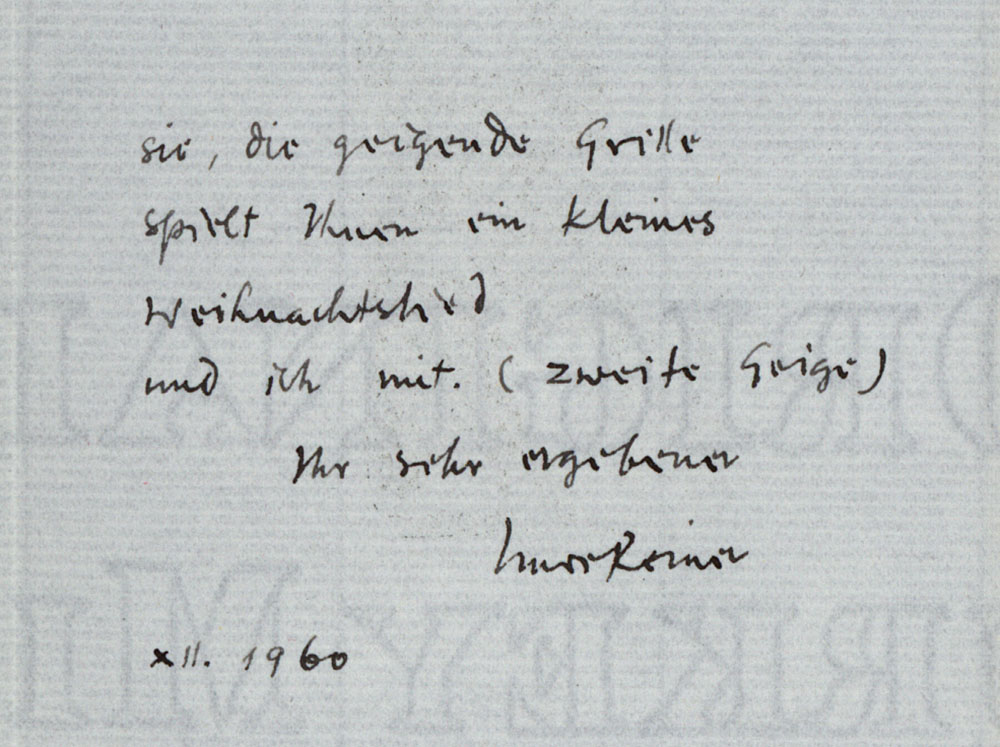 sie, die geigende Grille
spielt Ihnen ein kleines
Weihnachtslied
und ich mit. (zweite Geige)
Ihr sehr ergebener
XII. 1960